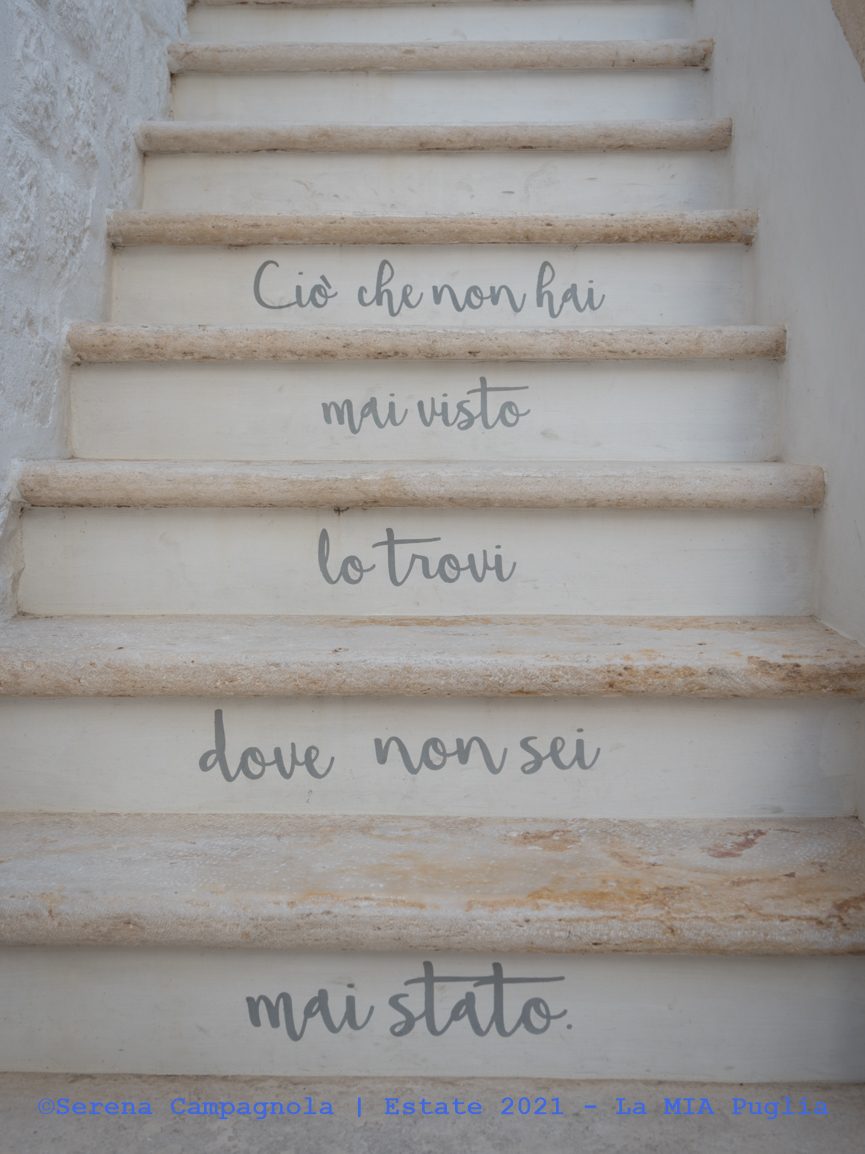 Ciò che non hai
mai visto
lo trovi
dove non sei
mai stato.
©Serena Campagnola | Estate 2021 - La MIA Puglia